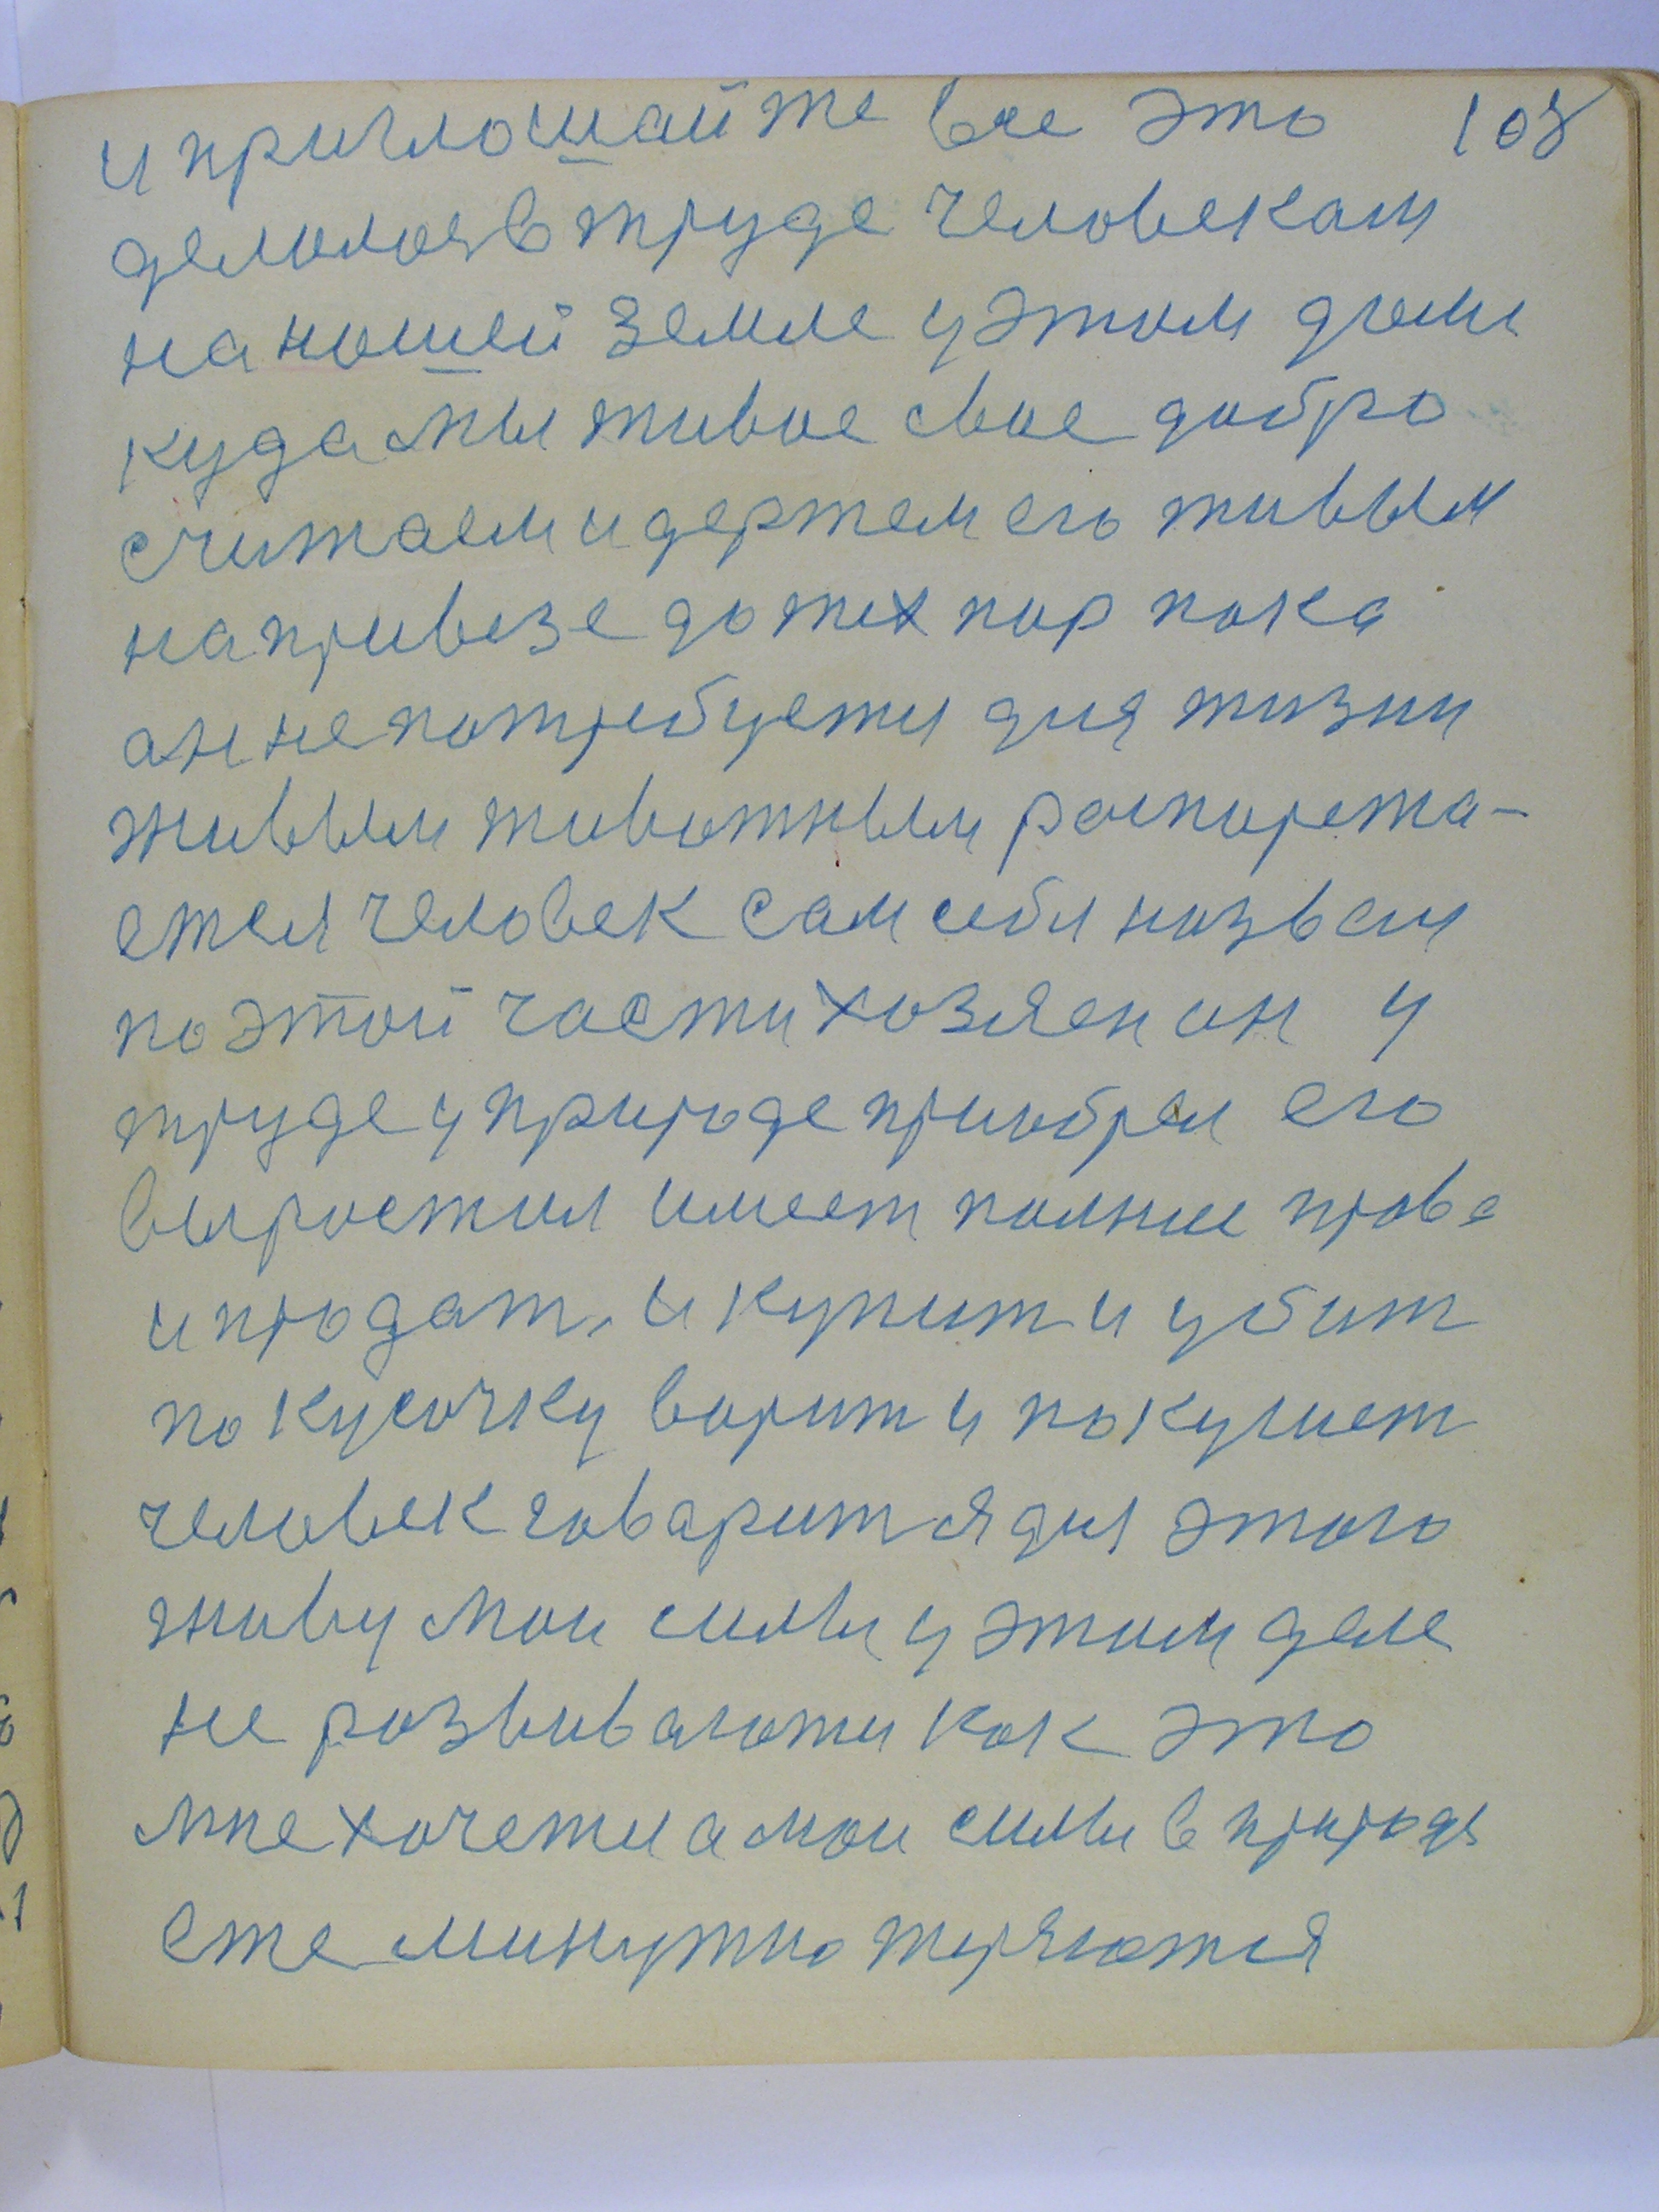 и приглошайте все это 103
делолось в труде человекам
на ношей земле у этом доми
куда мы живое свое добро
считаем и держем его живым
на привезе до тех пор пока
ан не потребуется для жизни
живым животным распорежа-
ется человек сам себя назвал
по этой части хозяеном у
труде у природе приобрел его
выростил имеет полние права
и продат, и купит и убит
по кусочку варит и покушает
человек говарит я для этого
живу мои силы у этим деле
не розвиваюти как это
мне хочется а мои силы в природе
еже минутно теряются